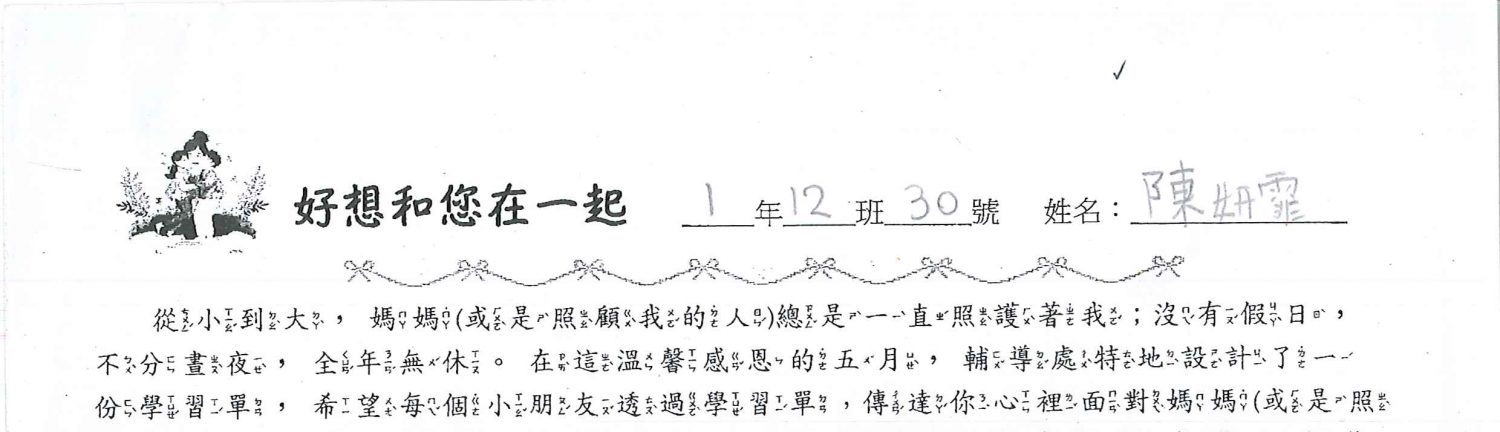 好想和您在一起 1年12班30號 姓名：陳妍霏
從小到大，媽媽(或是照顧我的人)總是一直照護著我；沒有假日，
不分晝夜，全年無休。在這溫馨感恩的五月，輔導處特地設計了一
份學習單，希望每個小朋友透過學習單，傳達你心裡面對媽媽(或是照